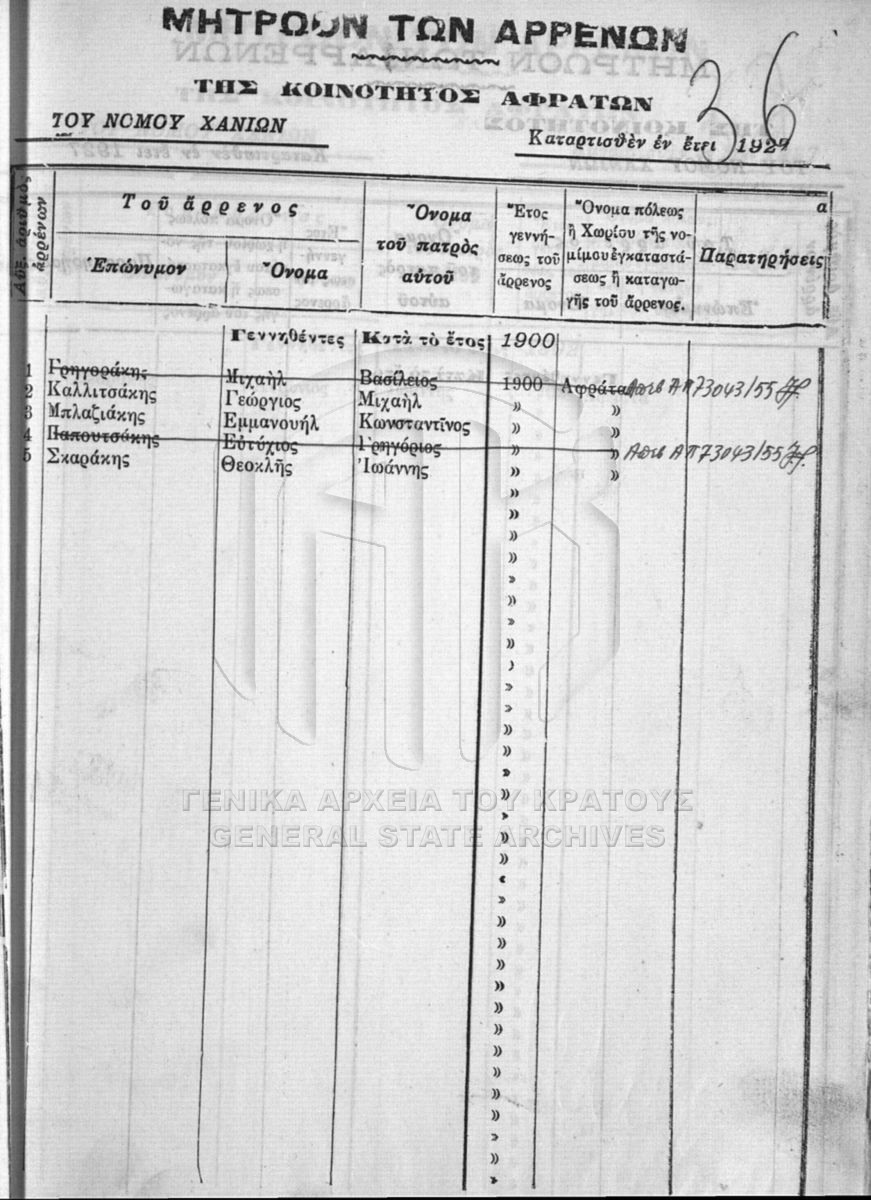 ΜΗΤΡΩΟΝ ΤΩΝ ΑΡΡΕΝΩΝ
ΤΗΣ ΚΟΙΝΟΤΗΤΟΣ ΑΦΡΑΤΩΝ
36
ΤΟΥ ΝΟΜΟΥ ΧΑΝΙΩΝ
Καταρτισθὲν ἐν ἔτει 1927
α
Αὔξ. ἀριθμὸς ἀρρένων
Τοῦ ἄρρενος
Ἐπώνυμον
Ὄνομα
Ὄνομα
τοῦ πατρὸς
αὐτοῦ
Ἔτος
γεννή-
σεως τοῦ
ἄρρενος
Ὄνομα πόλεως
ἢ Χωρίου τῆς νο-
μίμου ἐγκαταστά-
σεως ἢ καταγω-
γῆς τοῦ ἄρρενος.
Παρατηρήσεις
Γεννηθέντες Κατὰ τὸ ἔτος 1900
1 Γρηγοράκης Μιχαὴλ Βασίλειος 1900 Αφράτα ΑΠ 73043/55
2 Καλλιτσάκης Γεώργιος Μιχαὴλ » »
3 Μπλαζιάκης Εμμανουήλ Κωνσταντῖνος » »
4 Παπουτσάκης Εὐτύχιος Γρηγόριος » » ΑΠ 73043/55
5 Σκαράκης Θεοκλῆς Ἰωάννης » »
ΓΕΝΙΚΑ ΑΡΧΕΙΑ ΤΟΥ ΚΡΑΤΟΥΣ
GENERAL STATE ARCHIVES